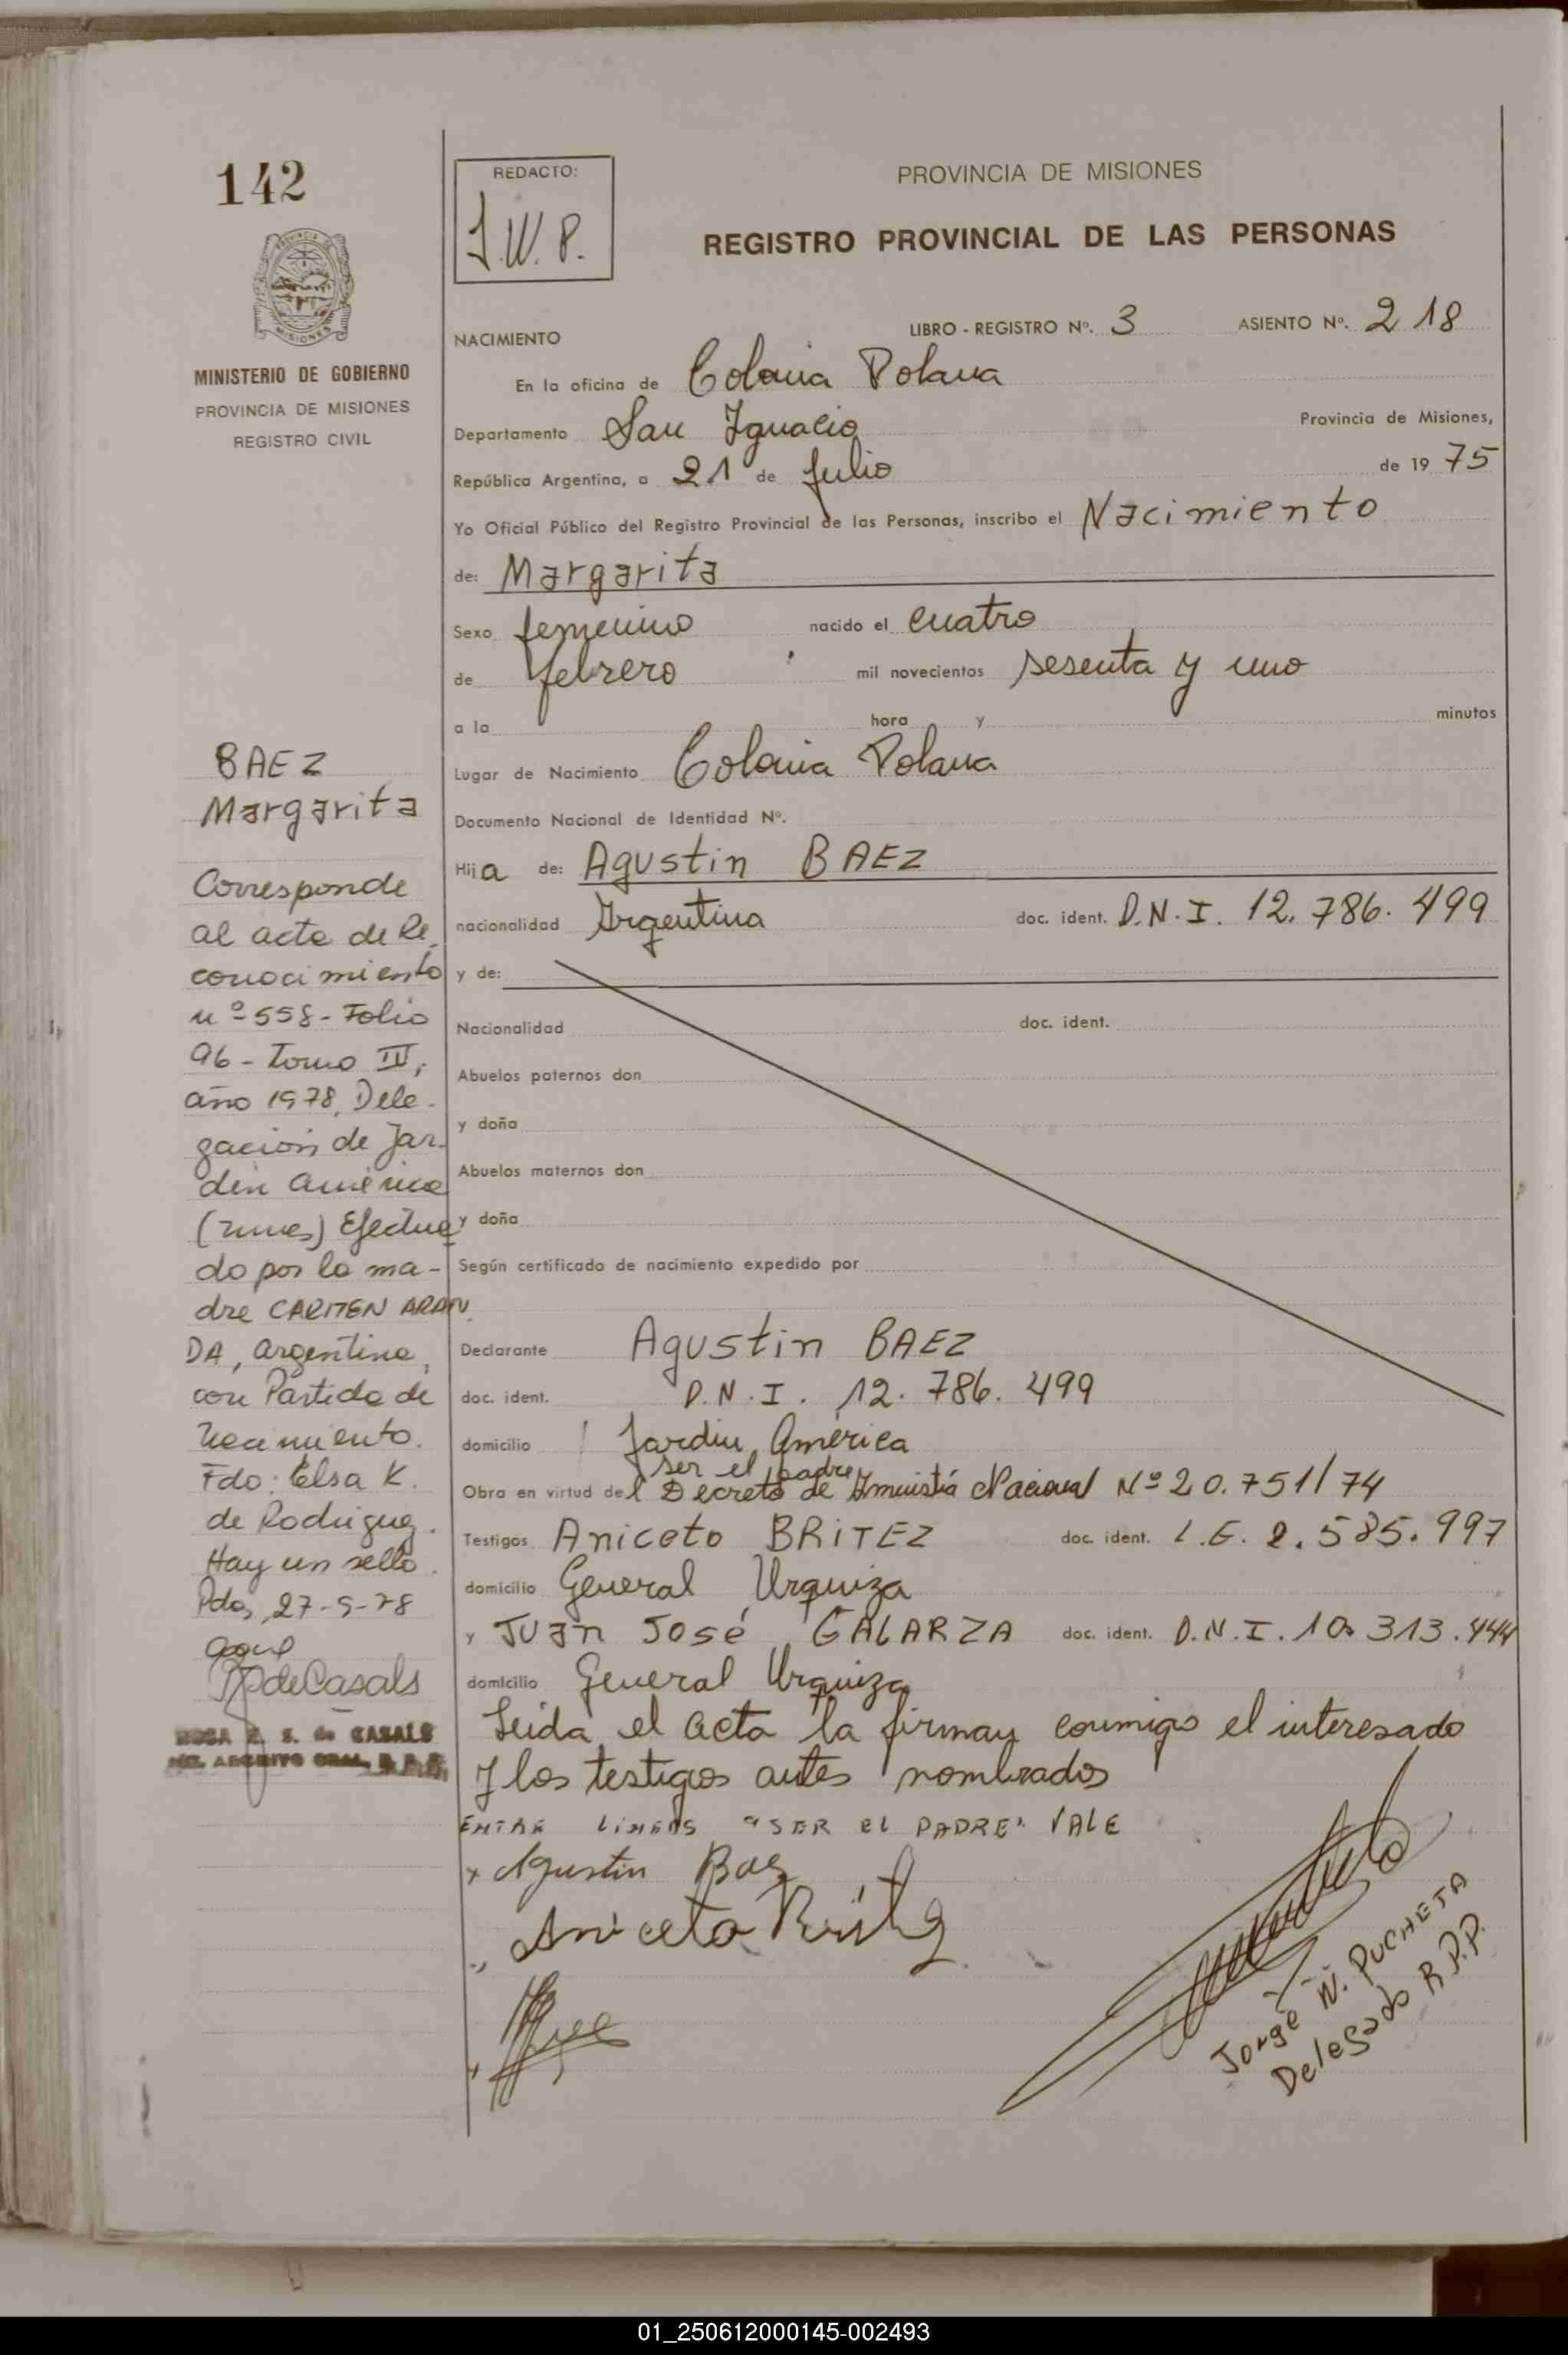 142
PROVINCIA DE MISIONES
MINISTERIO DE GOBIERNO
PROVINCIA DE MISIONES
REGISTRO CIVIL
BAEZ
Margarita
Corresponde
al acta de Re
conocimiento
nº 558 - Folio
96 - Tomo IV,
año 1978, Dele-
gación de Jar-
din América
(mnes) Efectua
do por la ma-
dre CARMEN ARAN
DA, argentina,
con Partida de
nacimiento.
Fdo: Elsa K.
de Rodriguez.
Hay un sello.
Pdas, 27-9-78
de Casals
ROSA E. S. de CASALS
REDACTO:
J.W.P.
PROVINCIA DE MISIONES
REGISTRO PROVINCIAL DE LAS PERSONAS
NACIMIENTO LIBRO - REGISTRO Nº. 3 ASIENTO Nº. 218
En la oficina de Colonia Polana
Departamento San Ignacio Provincia de Misiones,
República Argentina, a 21 de julio de 19 75
Yo Oficial Público del Registro Provincial de las Personas, inscribo el Nacimiento
de: Margarita
Sexo femenino nacido el cuatro
de febrero mil novecientos sesenta y uno
a la hora y minutos
Lugar de Nacimiento Colonia Polana
Documento Nacional de Identidad Nº.
Hija de: Agustin BAEZ
nacionalidad Argentina doc. ident. D.N.I. 12.786.499
y de:
Nacionalidad doc. ident.
Abuelos paternos don
y doña
Abuelos maternos don
y doña
Según certificado de nacimiento expedido por
Declarante Agustin BAEZ
doc. ident. D.N.I. 12.786.499
domicilio Jardin América
ser el padre
Obra en virtud del Decreto de Amnistiá Nacional Nº 20.751/74
Testigos Aniceto BRITEZ doc. ident. L.E. 2.585.997
domicilio General Urquiza
y JUan José GALARZA doc. ident. D.N.I. 10.313.444
domicilio General Urquiza
Leida el acta la firman conmigo el interesado
y los testigos antes nombrados
ENTRE LINEAS "SER El PADRE" VALE
x Agustin Baez
Aniceto Britez
Jorge W. PUCHETA
Delegado R.P.P.
01_250612000145-002493